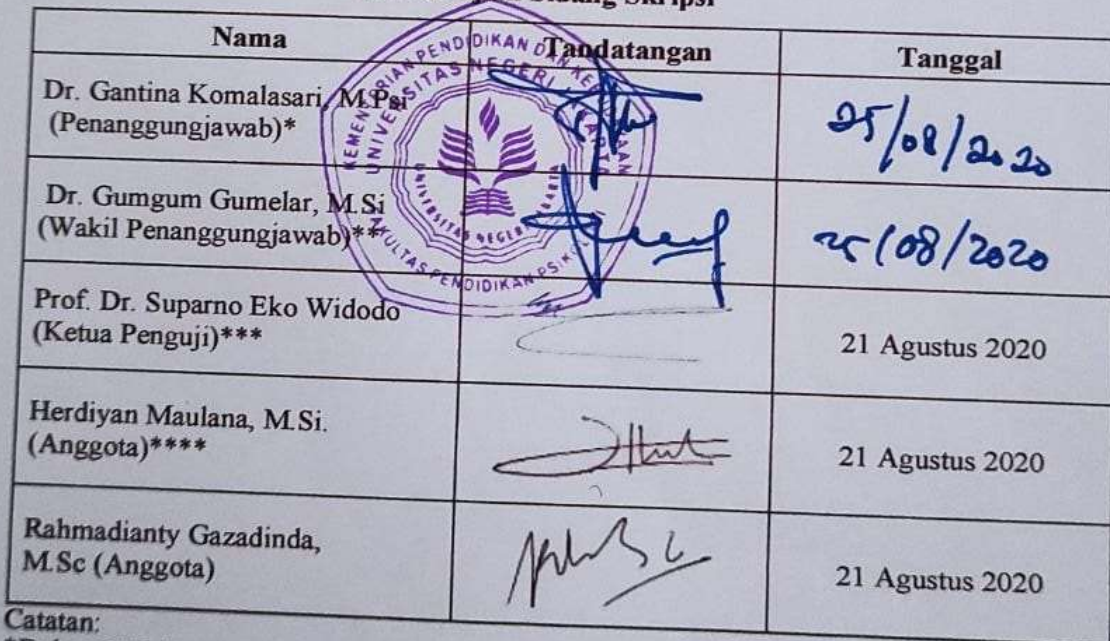 Sidang Skripsi
Nama
Tandatangan
Tanggal
Dr. Gantina Komalasari, M.Psi
(Penanggungjawab)*
25/08/2020
Dr. Gumgum Gumelar, M.Si
(Wakil Penanggungjawab)**
25/08/2020
Prof. Dr. Suparno Eko Widodo
(Ketua Penguji)***
21 Agustus 2020
Herdiyan Maulana, M.Si.
(Anggota)****
21 Agustus 2020
Rahmadianty Gazadinda,
M.Sc (Anggota)
21 Agustus 2020
KEMENTERIAN PENDIDIKAN DAN
UNIVERSITAS NEGERI
UNIVERSITAS NEGERI
FAKULTAS PENDIDIKAN PSIK
Catatan: